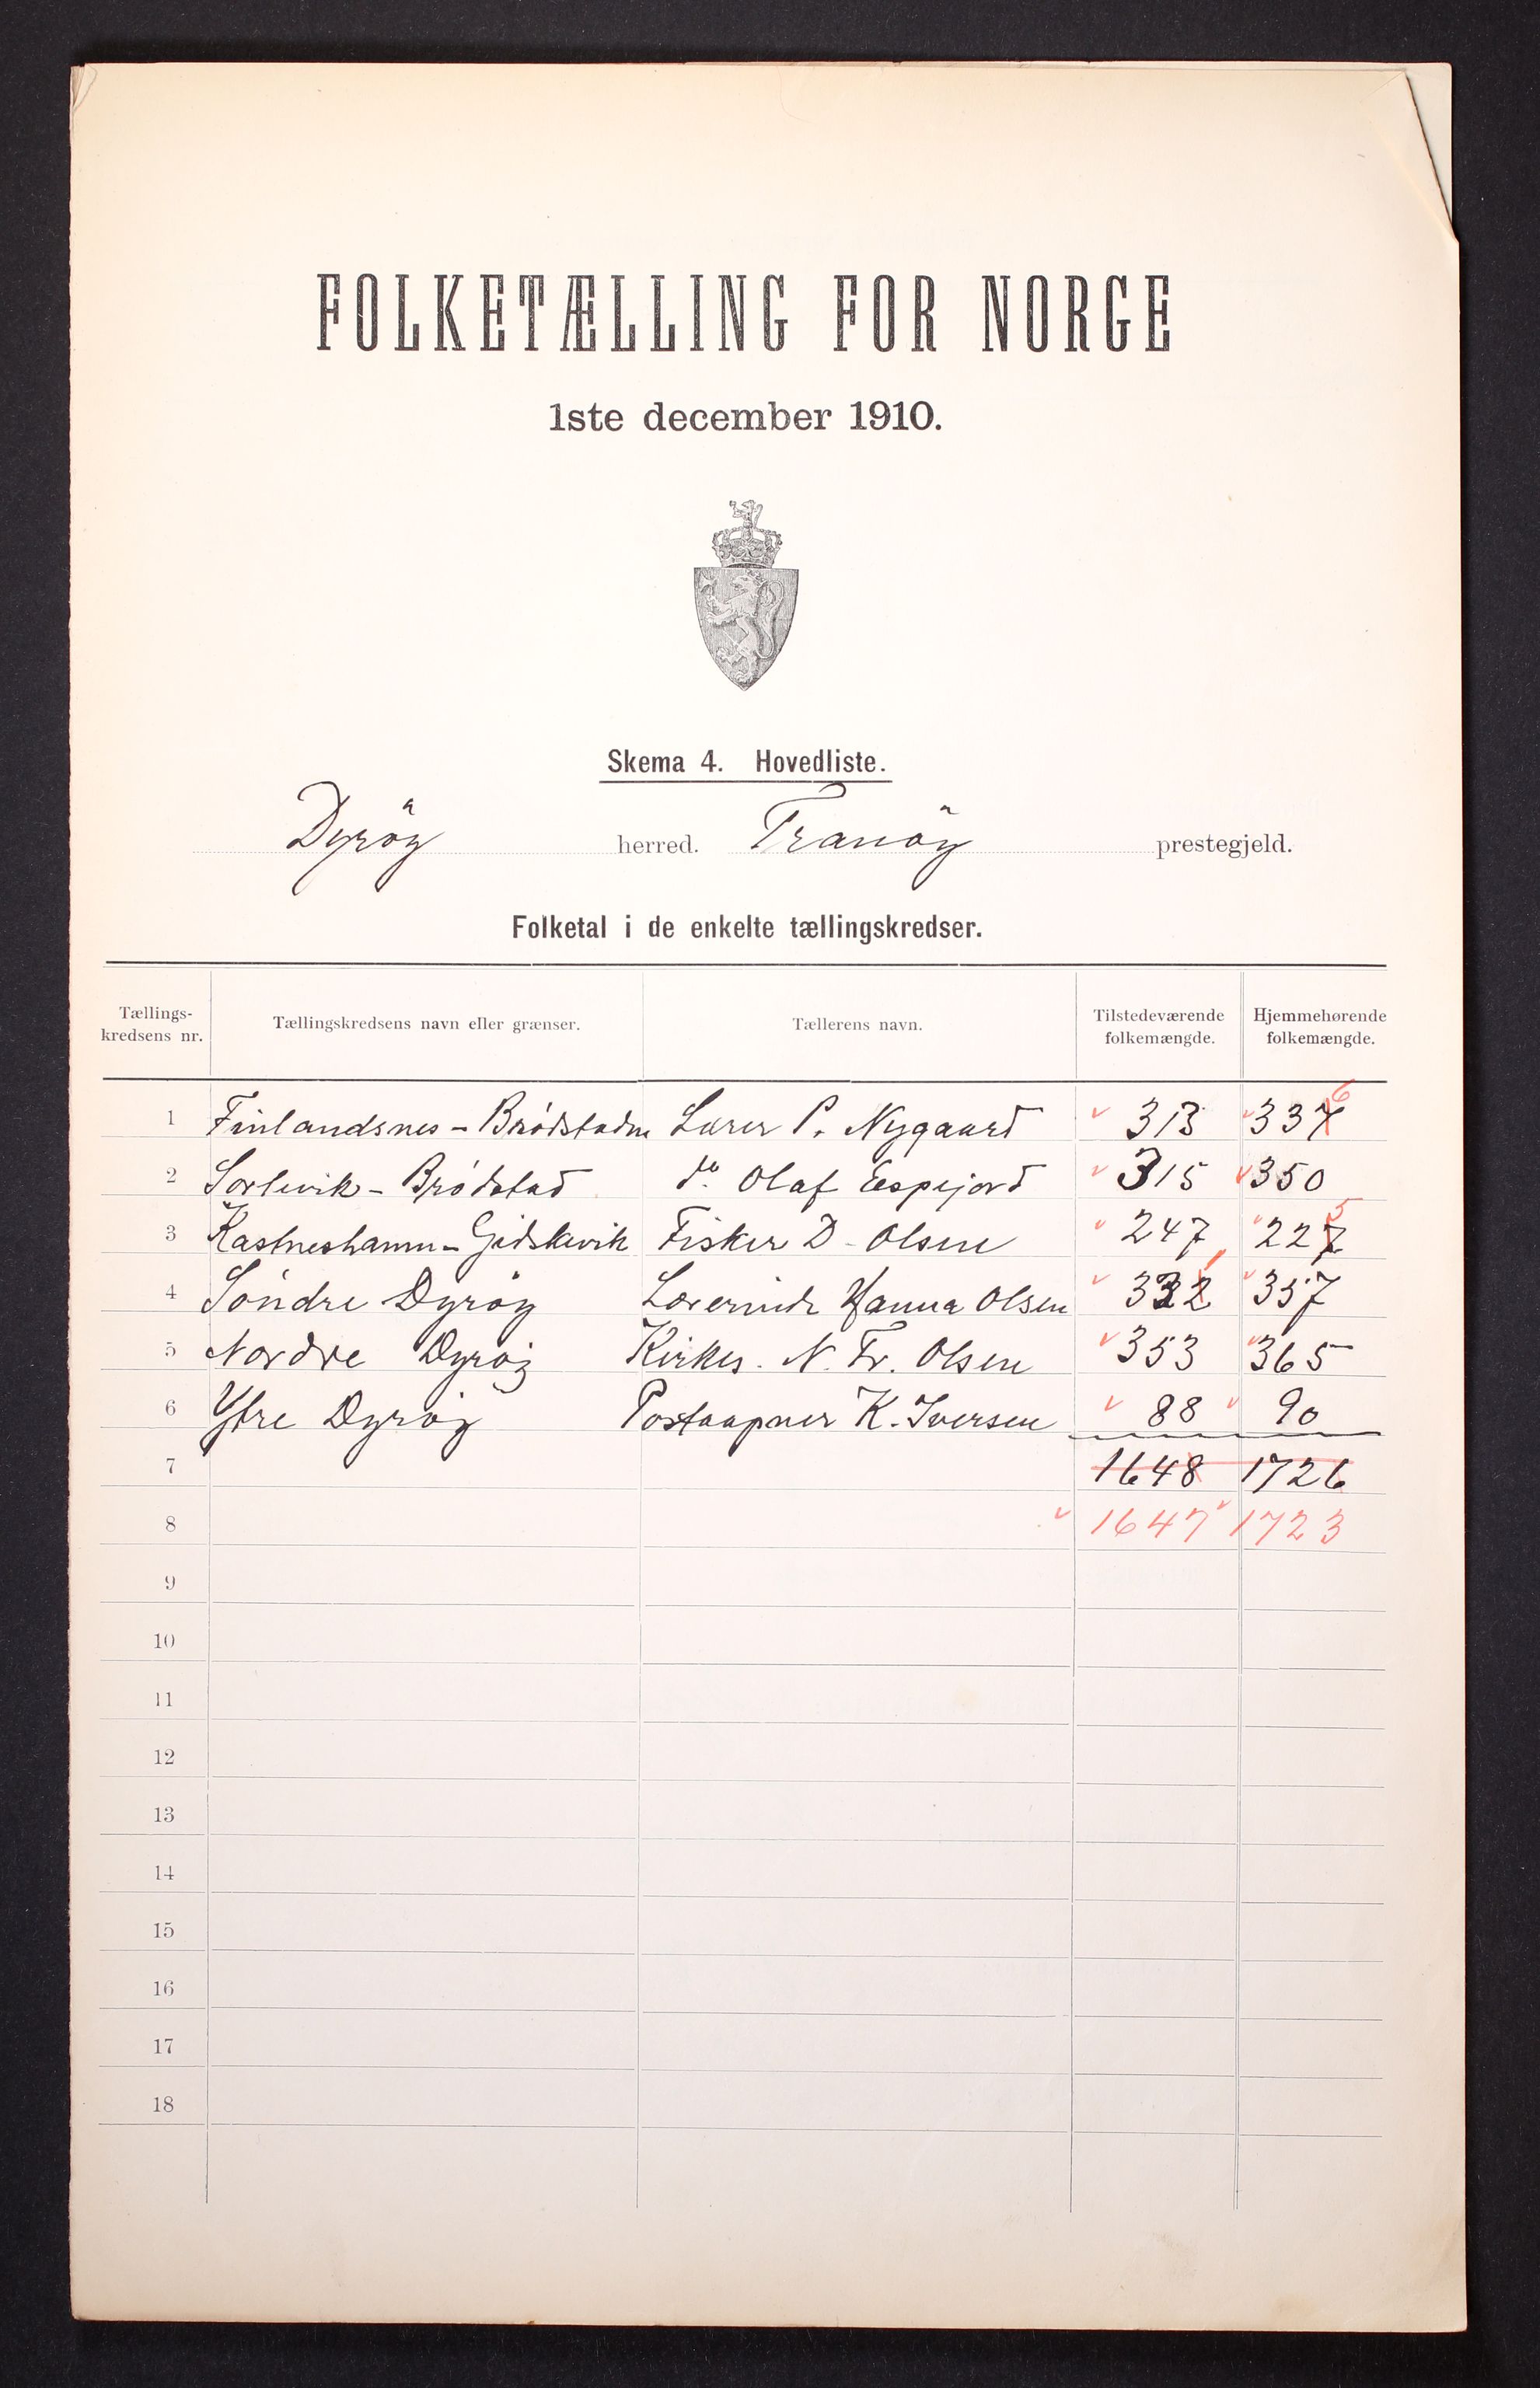 FOLKETÆLLING FOR NORGE
1ste december 1910.
Skema 4. Hovedliste.
Dyröy herred. Tranöy prestegjeld.
Folketal i de enkelte tællingskredser.
Tællings-kredsens nr. Tællingskredsens navn eller grænser. Tællerens navn. Tilstedeværende folkemængde. Hjemmehørende folkemængde.
1 Finlandsnes - Brödstadm Lærer P. Nygaard 313 337 6
2 Sorlivik - Brödstad do Olaf Espejord 315 350
3 Kastneshamn - Gidskevik Fisker D - Olsen 247 227 5
4 Söndre Dyröy Lærerinde Hanna Olsen 332 1 357
5 Nordre Dyröy Kirkes. N. Fr. Olsen 353 365
6 Ytre Dyröy Postaapner K. Iversen 88 90
7 1648 1726
8 1647 1723
9
10
11
12
13
14
15
16
17
18